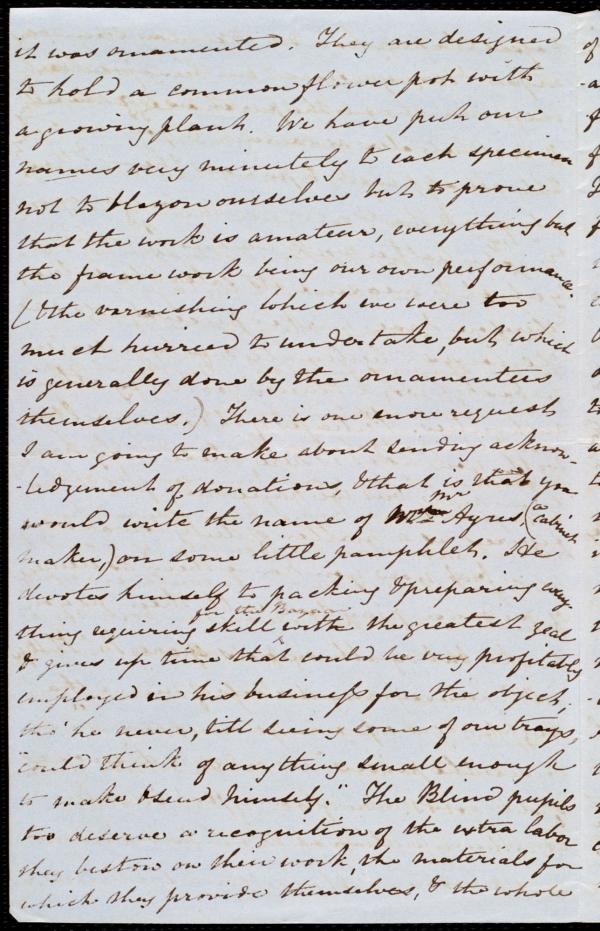 it was ornamented. They are designed
to hold a common flower pot with
a growing plant. We have put our
names very minutely to each specimen
not to blazon ourselves but to prove
that the work is amateur, everything but
the frame work being our own performance.
(& the varnishing which we were too
much hurried to undertake, but which
is generally done by the ornamenters
themselves.) There is one more request
I am going to make about sending acknow-
-ledgement of donations, & that is that you
would write the name of Mr Ayres, (a cabinet
maker,) on some little pamphlet. He
devotes himself to packing & preparing every
thing requiring skill for the Bazaar with the greatest zeal
& gives up time that could be very profitably
employed in his business for the object,
tho' he never, till seeing some of our trays,
"could think of anything small enough
to make & send himself." The Blind pupils
too deserve a recognition of the extra labor
they bestow on their work, the materials for
which they provide themselves, & the whole